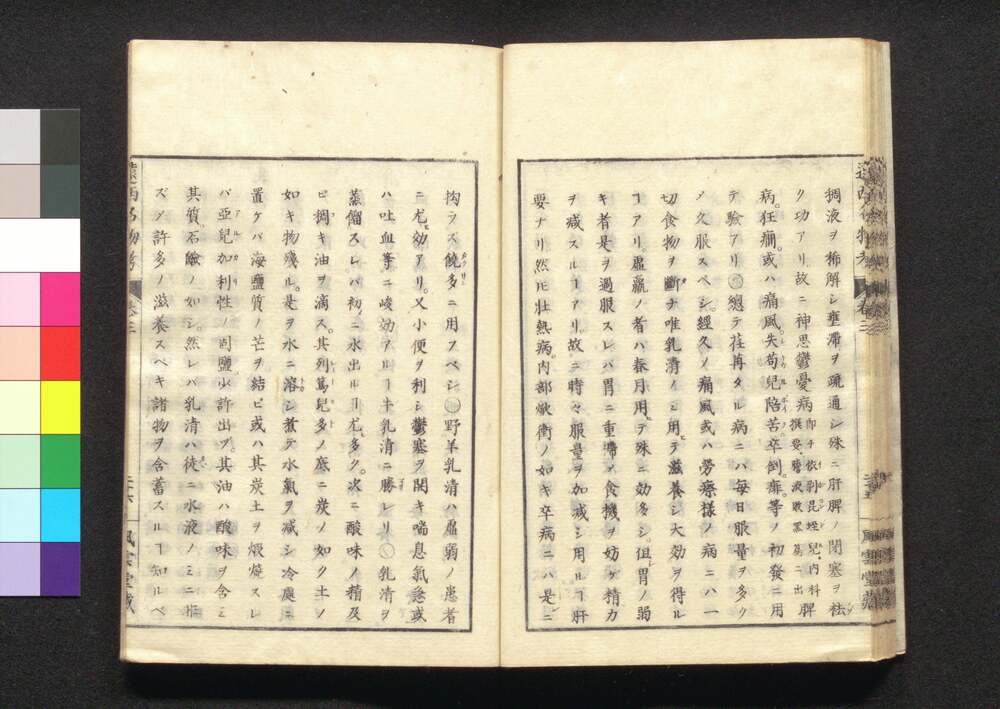 稠液ヲ稀解シ壅滞ヲ疏通シ殊ニ肝脾ノ閉塞ヲ袪
ク功アリ故ニ神思鬱憂病即チ依剝昆垤兒内科撰要
病狂癇或ハ痛風失苟兒陪苦卒倒痱等ノ初發ニ用
テ驗アリ〇總テ荏苒タル病ニハ毎日服量ヲ多ク
ノ久服スベシ經久ノ痛風或ハ勞瘵様ノ病ニハ一
切食物ヲ斷ナ唯乳清ノミヲ用テ滋養シ大効ヲ得ル
ヿアリ虚羸ノ者ハ春月用テ殊ニ効多シ但胃ノ弱
キ者是ヲ過服スレバ胃ニ重滯メ食機ヲ妨ゲ精力
ヲ減スルヿアリ故ニ時々服量ヲ加減シ用ルヿ肝
要ナリ然𪜈壮熱病内部焮衝ノ如キ卒病ニハ是ニ
拘ラズ饒多ニ用フベシ〇野羊乳清ハ虚弱ノ患者
ニ尤効アリ又小便ヲ利シ鬱塞ヲ開キ喘息氣急或
ハ吐血等ニ峻効アルヿ牛乳清ニ勝レリ〇乳清ヲ
蒸餾スレバ初ニ水出ルヿ尤多ク次ニ酸味ノ精及
ヒ稠キ油ヲ滴ス其列篤兒多ノ底ニ炭ノ如ク土ノ
如キ物殘ル是ヲ水ニ溶シ煮テ水氣ヲ減シ冷處ニ
置ケバ海鹽質ノ芒ヲ結ビ或ハ其炭土ヲ煅燒スレ
バ亞兒加利性ノ固鹽少許出ヅ其油ハ酸味ヲ含ミ
其質石鹸ノ如シ然レバ乳清ハ徒ニ水液ノミニ非
ズメ許多ノ滋養スベキ諸物ヲ含蓄スルヿ知ルベ
遠西名物考
卷三
二十六
風雲堂藏